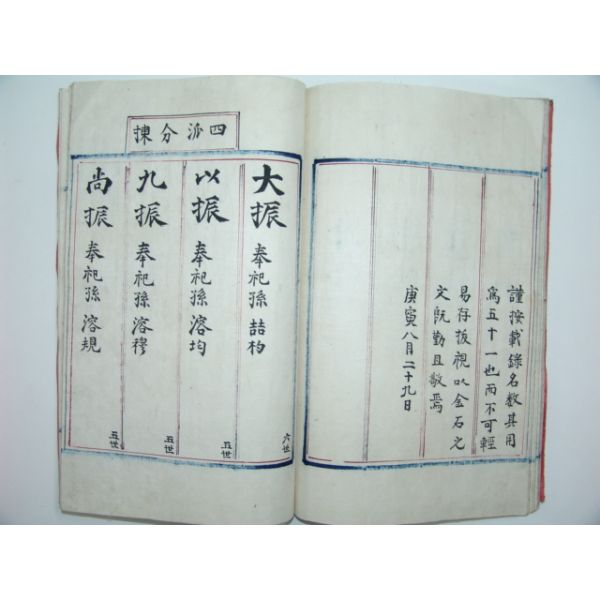 謹按載錄名數其用
爲五十一也而不可輕
易存拔視以金石之
文既勤且敬焉
庚寅八月二十九日
四派分揀
大振 奉祀孫 喆杓 六世
以振 奉祀孫 溶均 五世
九振 奉祀孫 溶穆 五世
尚振 奉祀孫 溶規 五世